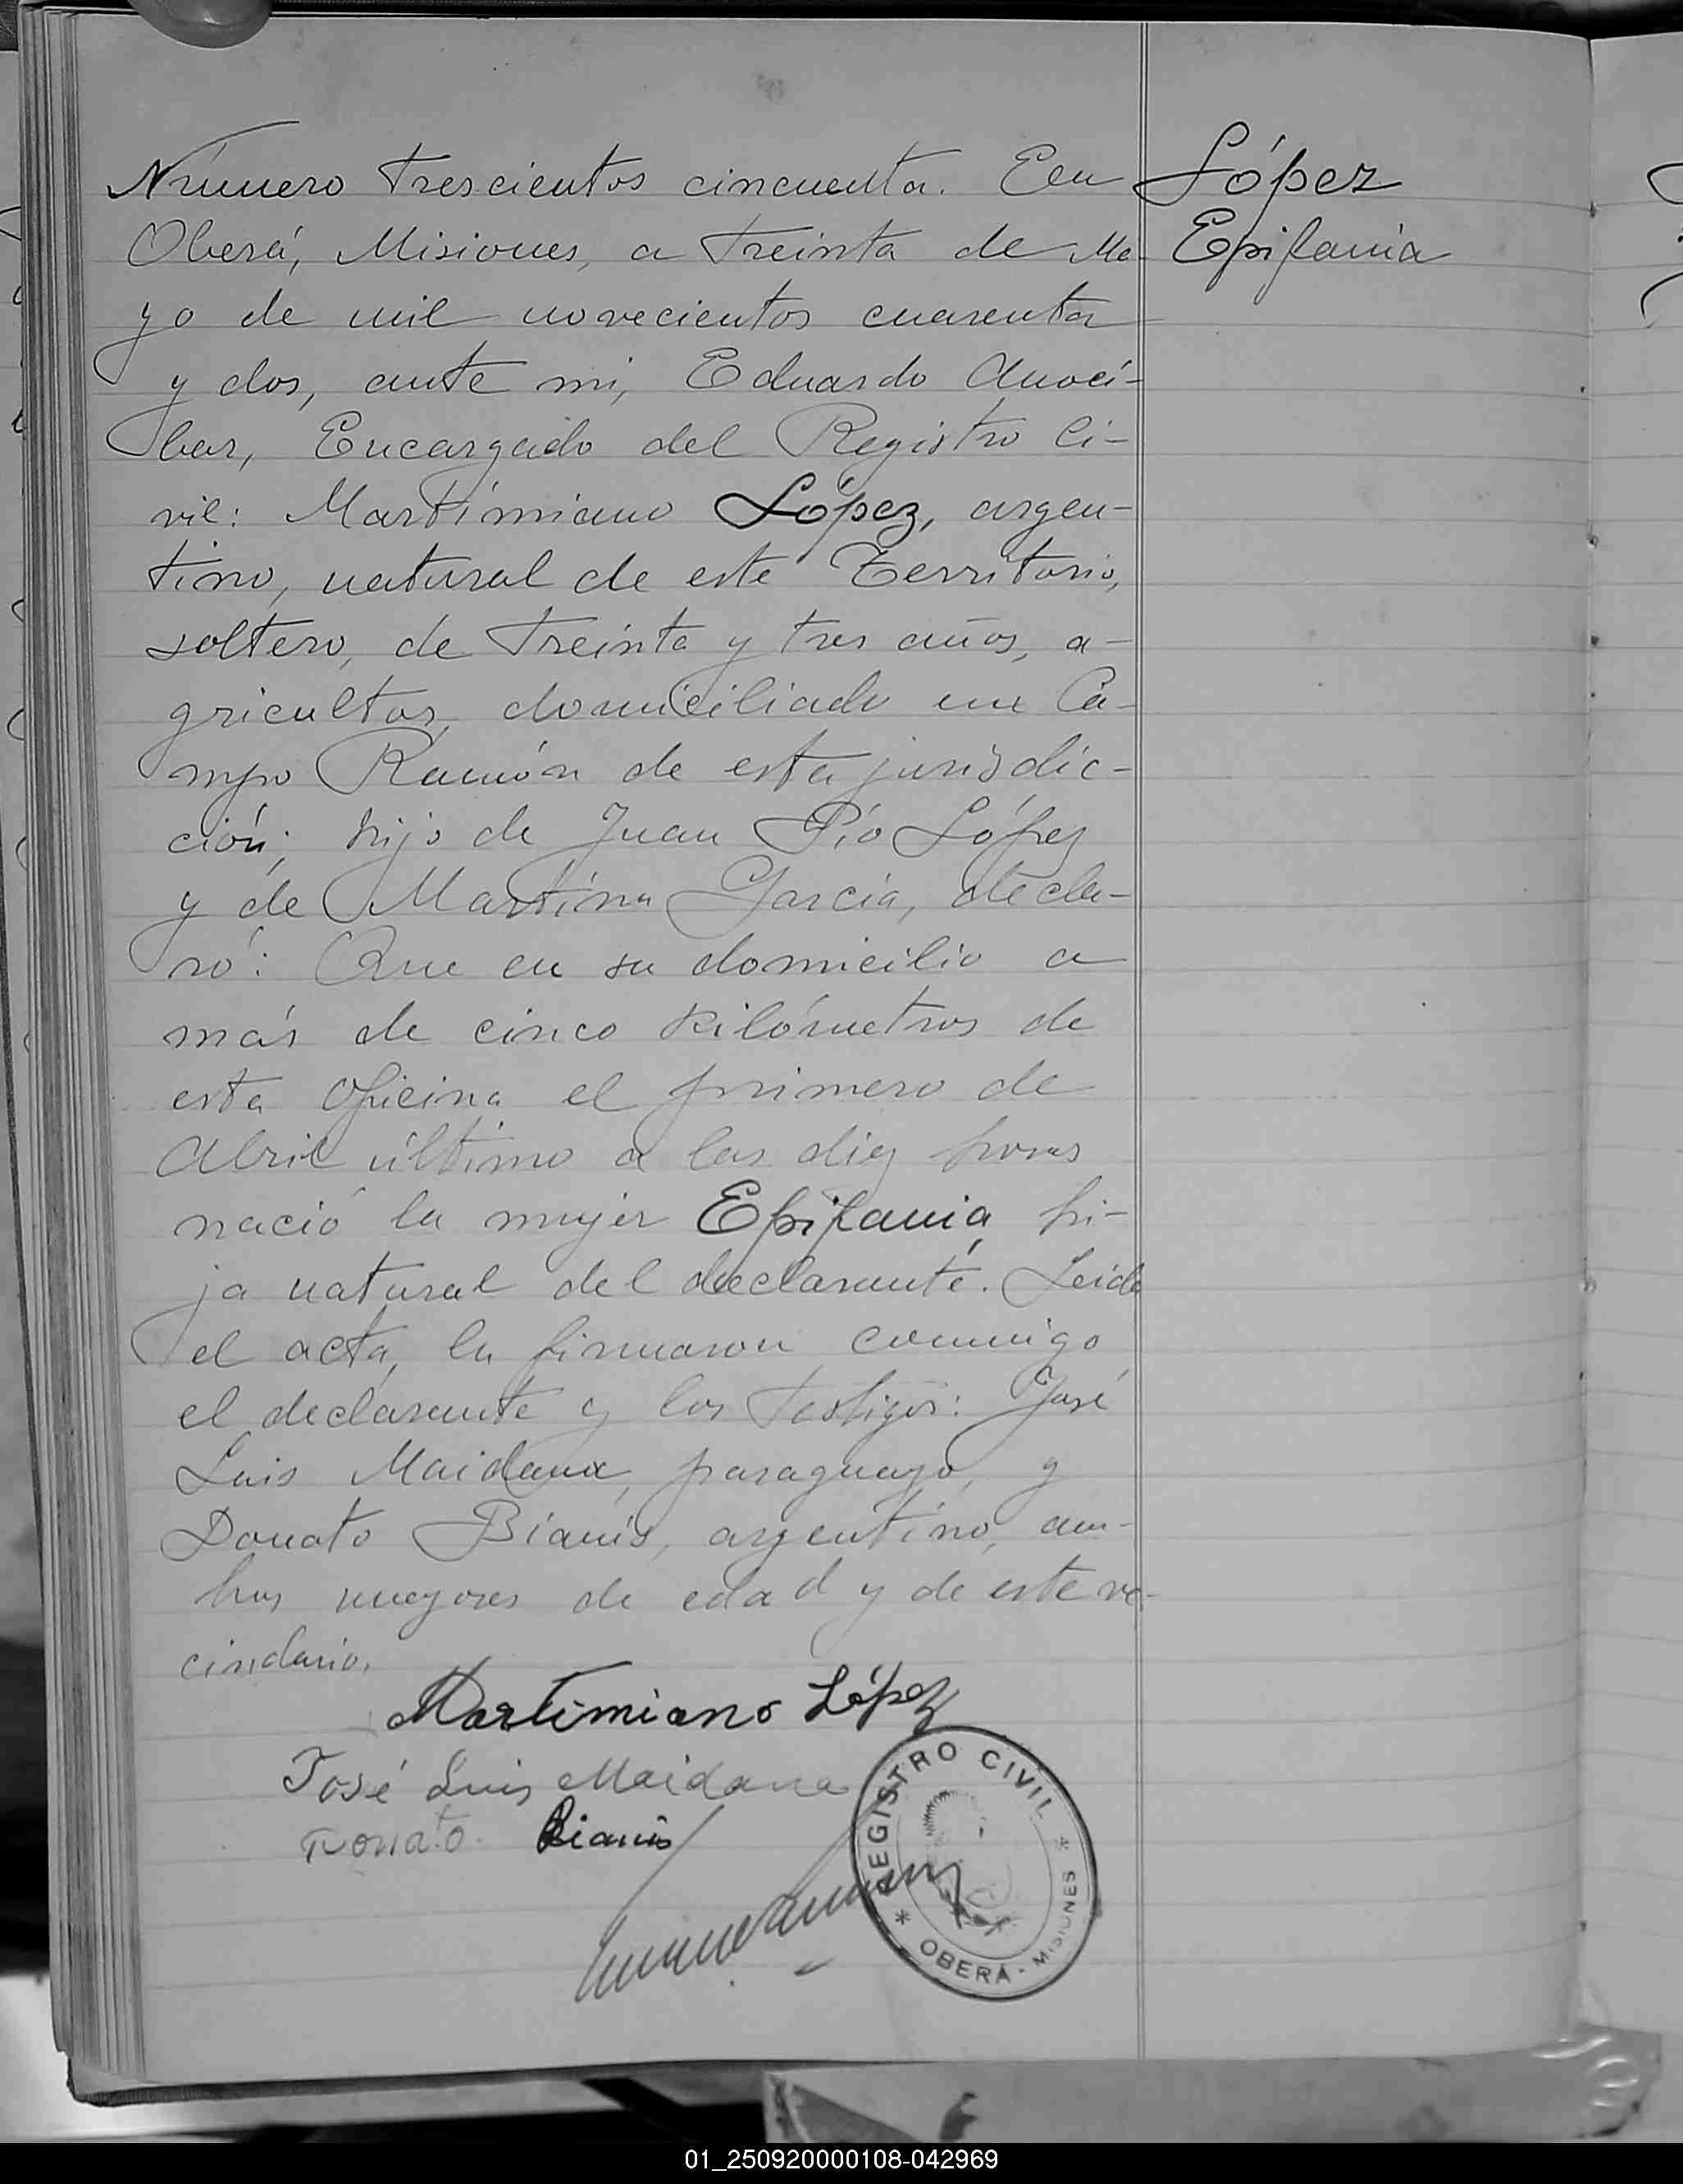 Número trescientos cincuenta. En
Oberá, Misiones, a treinta de Ma-
yo de mil novecientos cuarenta
y dos, ante mi, Eduardo Anocí-
bar, Encargado del Registro Ci-
vil: Martimiano López, argen-
tino, natural de este Territorio,
soltero, de treinta y tres años, a-
gricultor, domiciliado en Ca-
mpo Ramón de esta jurisdic-
ción; hijo de Juan Pío López
y de Martina García, decla-
ró: Que en su domicilio a
más de cinco kilómetros de
esta Oficina el primero de
Abril último a las diez horas
nació la mujer Epifania, hi-
ja natural del declarante. Leida
el acta, la firmaron conmigo
el declarante y los testigos: José
Luis Maidana, paraguayo, y
Donato Bianís, argentino, am-
bos mayores de edad y de este ve-
cindario.
López
Epifania
Martimiano López
José Luis Maidana
Donato Bianis
REGISTRO CIVIL
* OBERÁ - MISIONES *
01_250920000108-042969